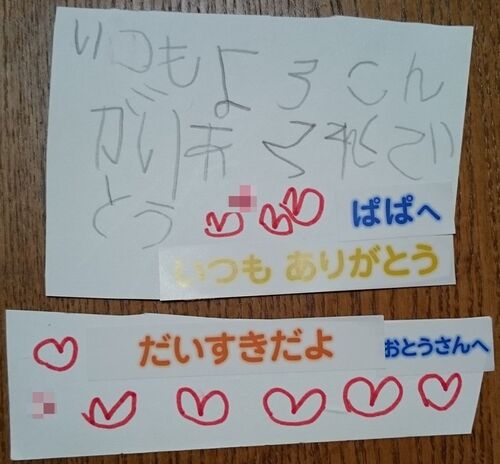 いつもよろこん
がりあ
とう
ぱぱへ
いつも ありがとう
だいすきだよ
おとうさんへ